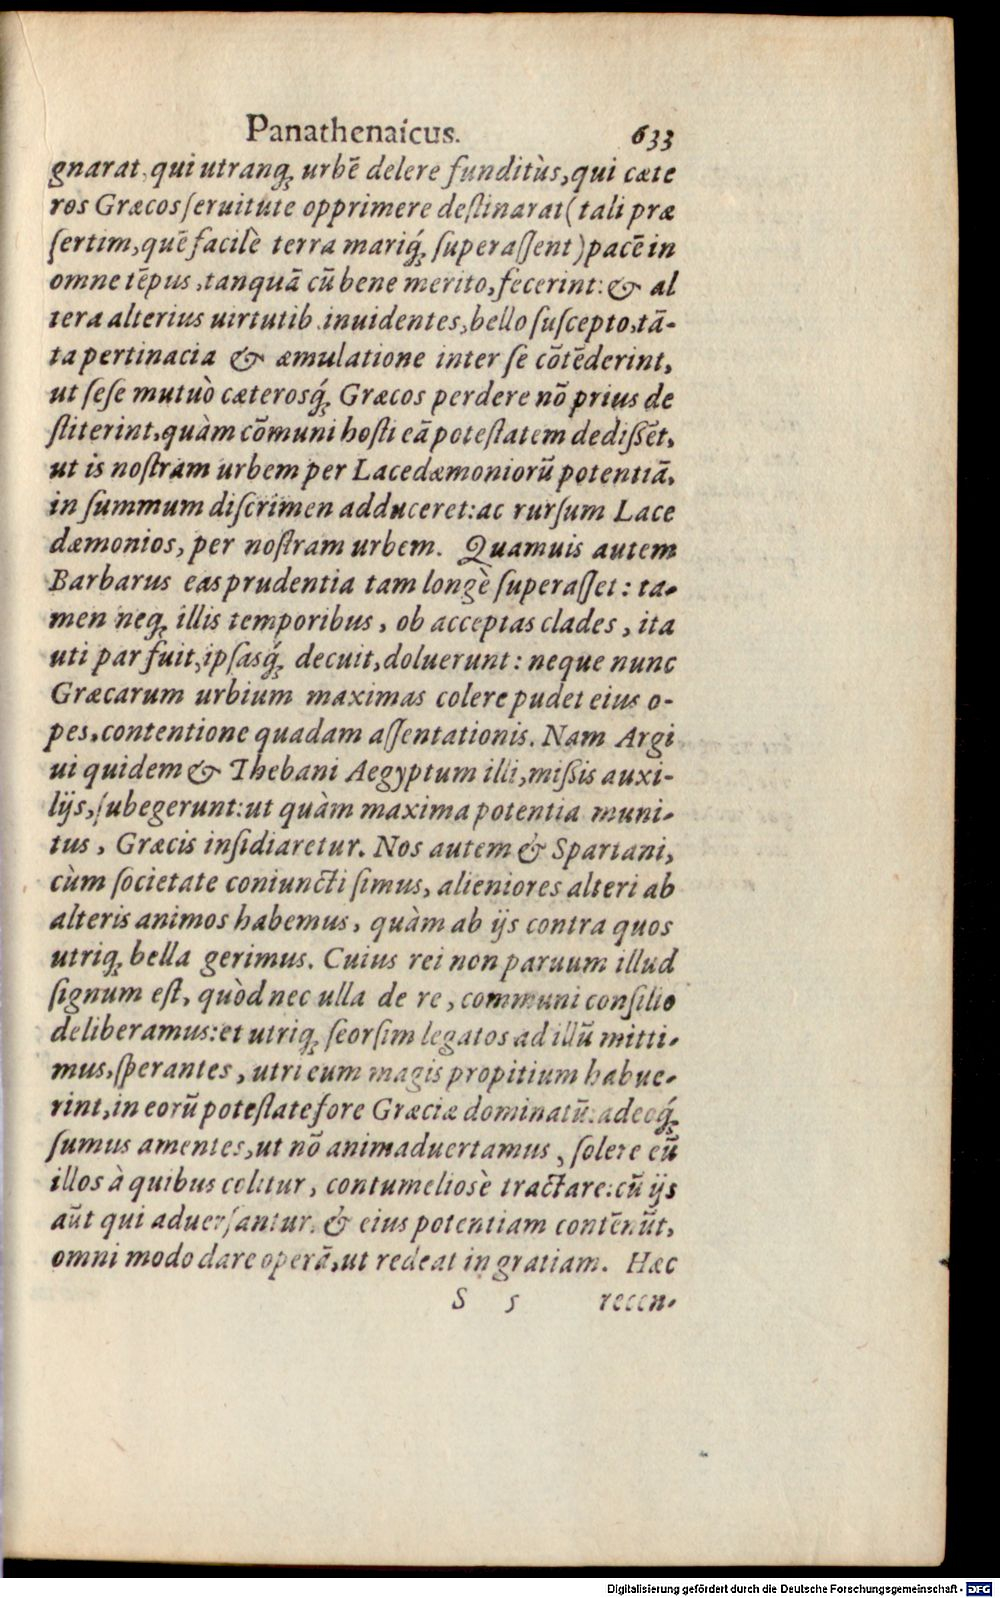 Panathenaicus. 633
gnarat, qui utranq; urbē delere funditùs, qui cæte
ros Græcos ſeruitute opprimere deſtinarat (tali præ
ſertim, quē facilè terra mariq́; ſuperaſſent) pacē in
omne tēpus, tanquā cū bene merito, fecerint: & al
tera alterius uirtutib. inuidentes, bello ſuſcepto, tā-
ta pertinacia & æmulatione inter ſe cōtēderint,
ut ſeſe mutuò cæterosq́; Græcos perdere nō prius de
ſtiterint, quàm cōmuni hoſti eā poteſtatem dediſſēt,
ut is noſtram urbem per Lacedæmoniorū potentiā,
in ſummum diſcrimen adduceret: ac rurſum Lace
dæmonios, per noſtram urbem. Quamuis autem
Barbarus eas prudentia tam longè ſuperaſſet: ta-
men neq; illis temporibus, ob acceptas clades, ita
uti par fuit, ipſasq́; decuit, doluerunt: neque nunc
Græcarum urbium maximas colere pudet eius o-
pes, contentione quadam aſſentationis. Nam Argi
ui quidem & Thebani Aegyptum illi, miſsis auxi-
lijs, ſubegerunt: ut quàm maxima potentia muni-
tus, Græcis inſidiaretur. Nos autem & Spartani,
cùm ſocietate coniuncti ſimus, alieniores alteri ab
alteris animos habemus, quàm ab ijs contra quos
utriq; bella gerimus. Cuius rei non paruum illud
ſignum eſt, quòd nec ulla de re, communi conſilio
deliberamus: et utriq; ſeorſim legatos ad illū mitti-
mus, ſperantes, utri eum magis propitium habue-
rint, in eorū poteſtate fore Græciæ dominatū: adeoq́;
ſumus amentes, ut nō animaduertamus, ſolere eū
illos à quibus colitur, contumelioſè tractare: cū ijs
aūt qui aduerſantur, & eius potentiam contēnūt,
omni modo dare operā, ut redeat in gratiam. Hæc
S s recen-
Digitalisierung gefördert durch die Deutsche Forschungsgemeinschaft - DFG